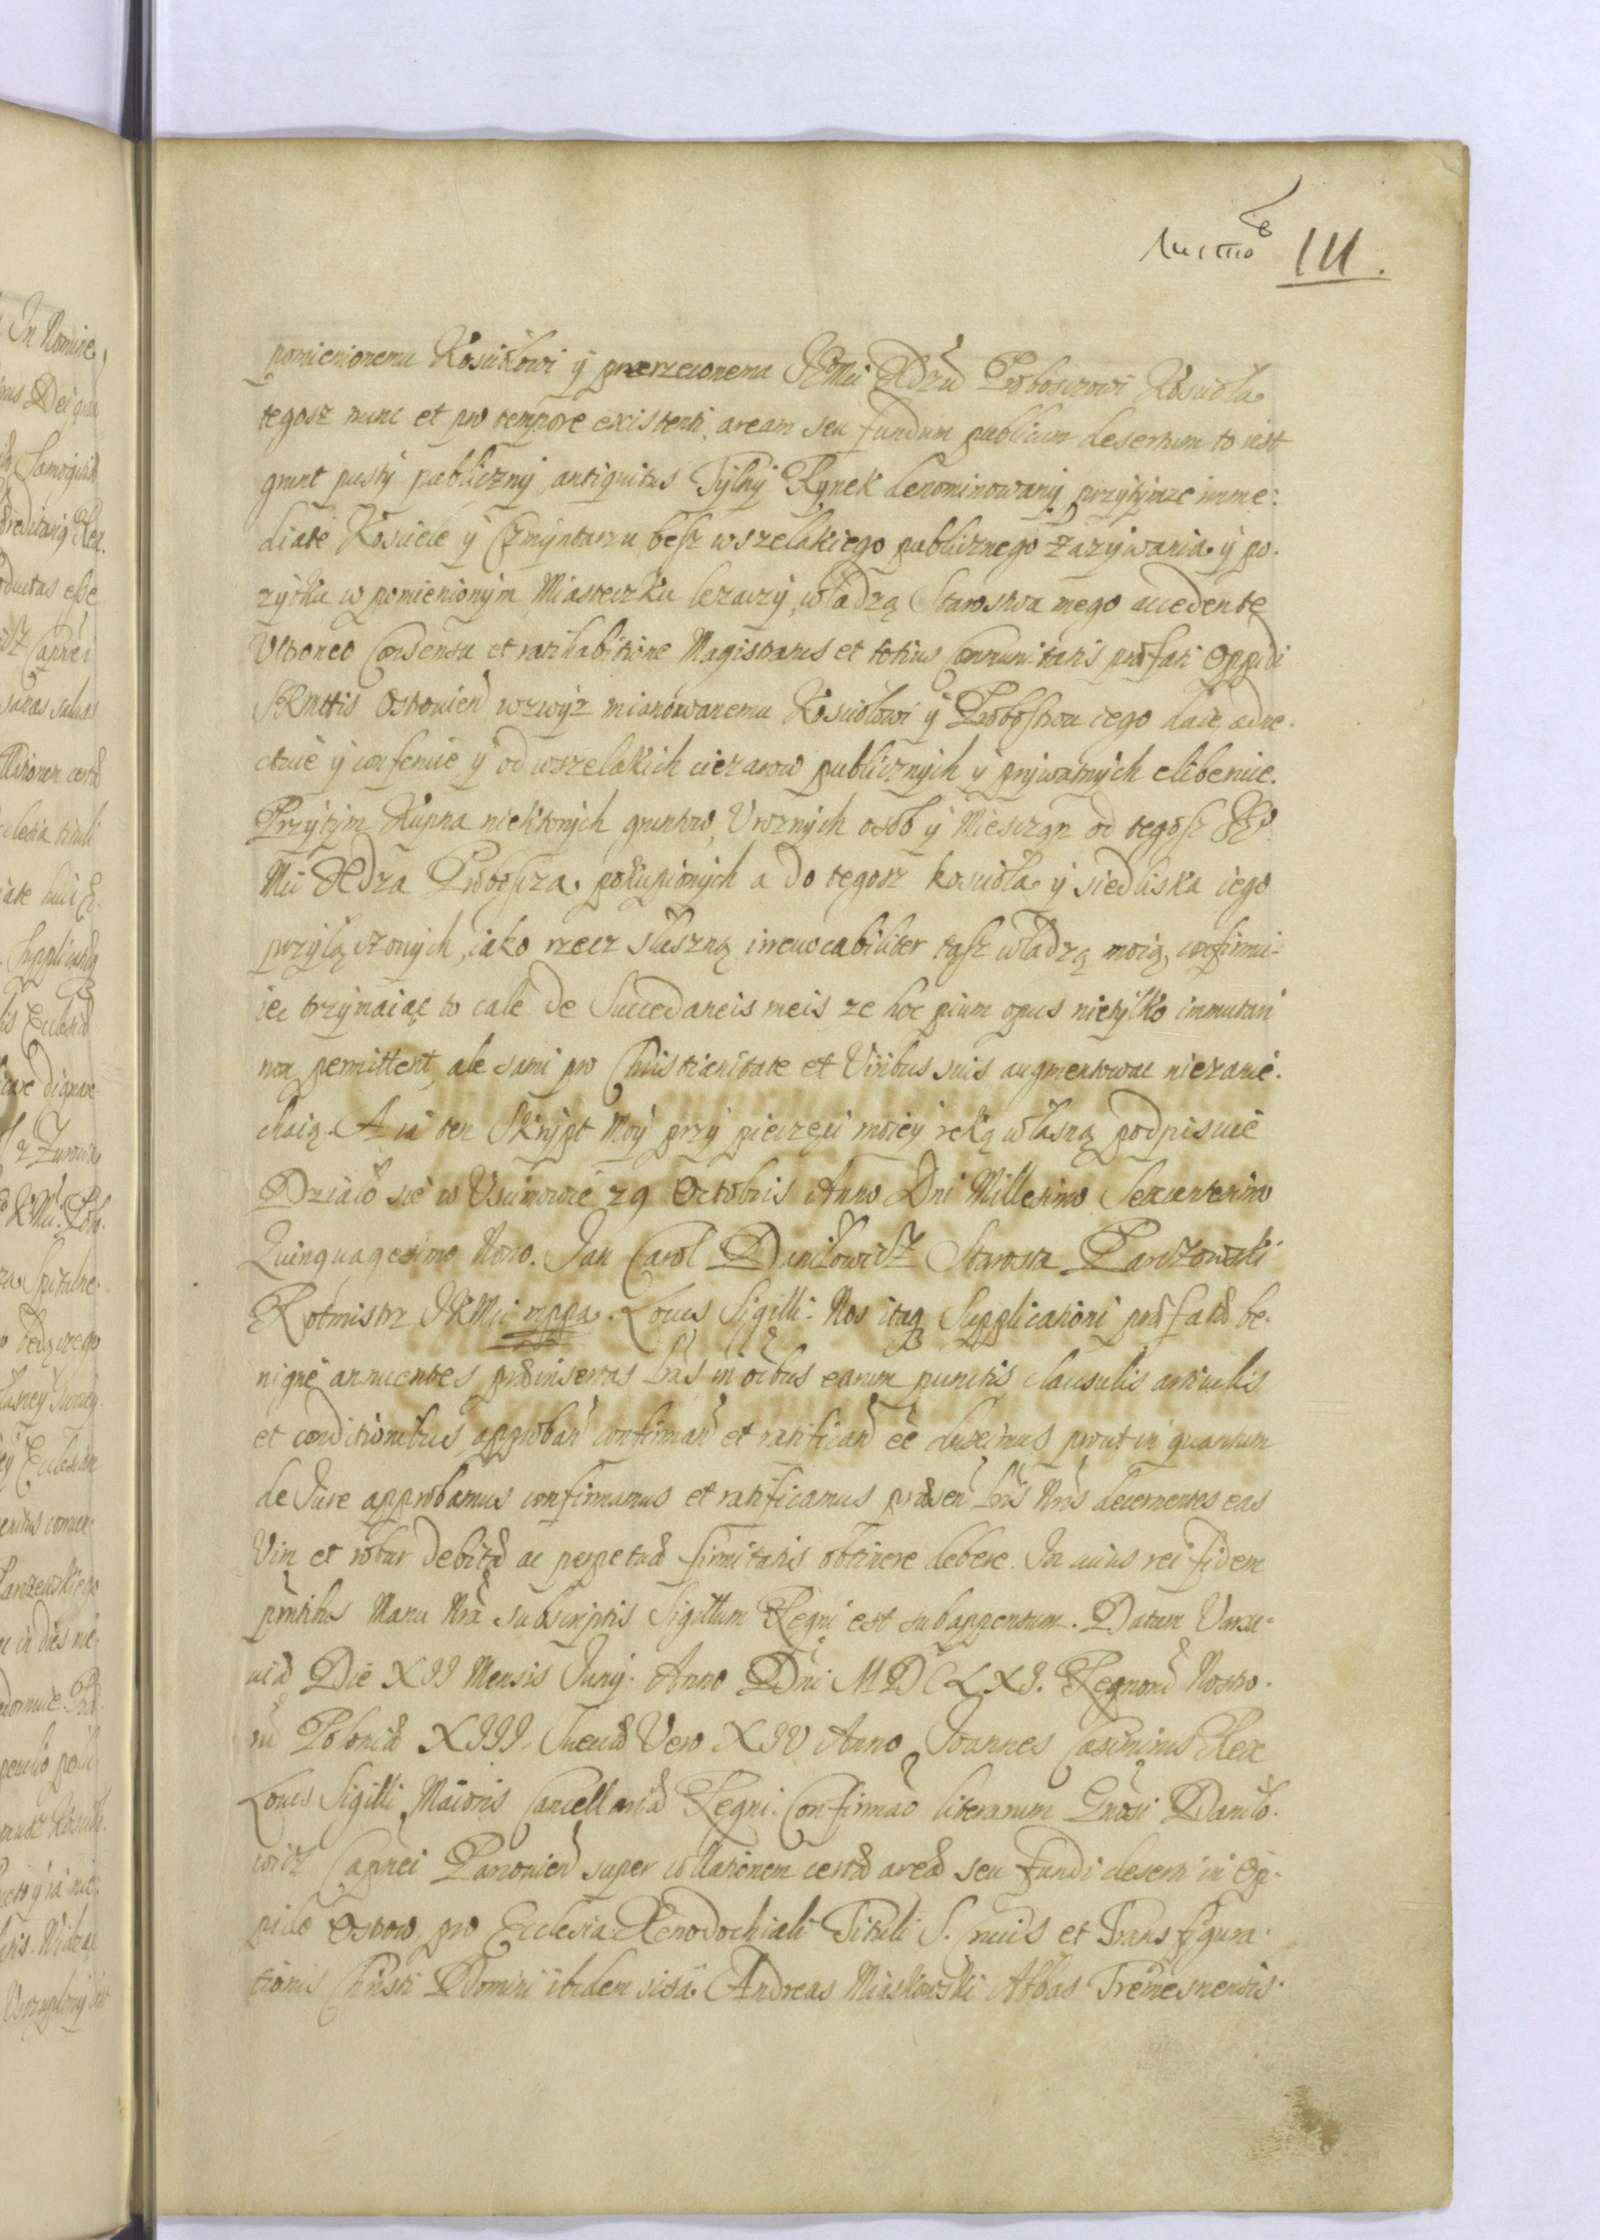 листов III.
pomienionemu Kosciołowi ÿ przerzeconemu JMci Xdzu Proboszczowi Koscioła
tegosz nunc et pro tempore existenti, aream seu fundum publicum desertum to iest
grunt pustÿ publicznÿ, antiquitus Tÿlnÿ Rÿnek denominowanÿ, przÿtÿmze imme:
diatè Kosciele ÿ Cmÿntarzu besz wszelakiego publicznego zazÿwania ÿ po-
zÿtku w pomienionÿm Miasteczku lezaczÿ, władzą Starostwa mego accedente
Vltroneo Consensu et ratihabitione Magistratus et totius Communitatis præfati Oppidi
SRMttis Ostovien wzwÿz mianowanemu Kosciołowi ÿ Probostwu iego daie, adne-
ctuie ÿ conferuie ÿ od wszelakich ciezarow publicznÿch ÿ prÿwatnÿch eliberuie.
Przÿtÿm Kupna niektorÿch gruntow, Vroznÿch osob ÿ Mieszczan od tegosz JP
Mci Xdza Proboszcza pokupionÿch a do tegosz kosciola ÿ siedliska iego
przÿłączonÿch, iako rzecz słuszną irreuocabiliter tąsz władzą moią, confirmu-
ie, trzÿmaiąc to cale de Succedaneis meis ze hoc pium opus nietÿlko immutari
non permittent, ale sami pro Christianitate et Viribus suis augmentowac niezanie-
chaią. A ia ten Skrÿpt Moÿ przÿ pieczęci moieÿ ręką własną podpisuie
Działo sie w Vscimowie 29 Octobris Anno Dni Millesimo Sexcentesimo
Quinquagesimo Nono. Jan Carol Daniłowicz Starosta Parczowski
Rotmistrz JKMci mppa. Locus Sigilli. Nos itaq Supplicationi præfatæ be-
nignè annuentes præinsertas Lras in oibus earum punctis clausulis articulis
et conditionibus approban confirman et ratifican eè duximus prout in quantum
de Jure approbamus confirmamus et ratificamus præsen Lris Nris decernentes eas
Vim et robur debitæ ac perpetuæ firmitatis obtinere debere. In cuius rei fidem
pñtibus Manu Nra subscriptis Sigillum Regni est subappensum. Datum Varsa-
uiæ Die XII Mensis Junÿ. Anno Dni MDCLXI. Regnorũ Nostro-
rũ Poloniæ XIII. Sueciæ Vero XIV Anno Joannes Casimirus Rex
Locus Sigilli Maioris Cancellariæ Regni. Confirmão literarum Gnosi Daniło-
wicz Capnei Parcovien super collationem certæ areæ seu fundi deserti in Op-
pido Ostow, pro Ecclesia Xenodochiali Tituli S. Crucis et Transfigura-
tionis Christi Domini ibidem sita. Andreas Miaskowski Abbas Tremesnensis.